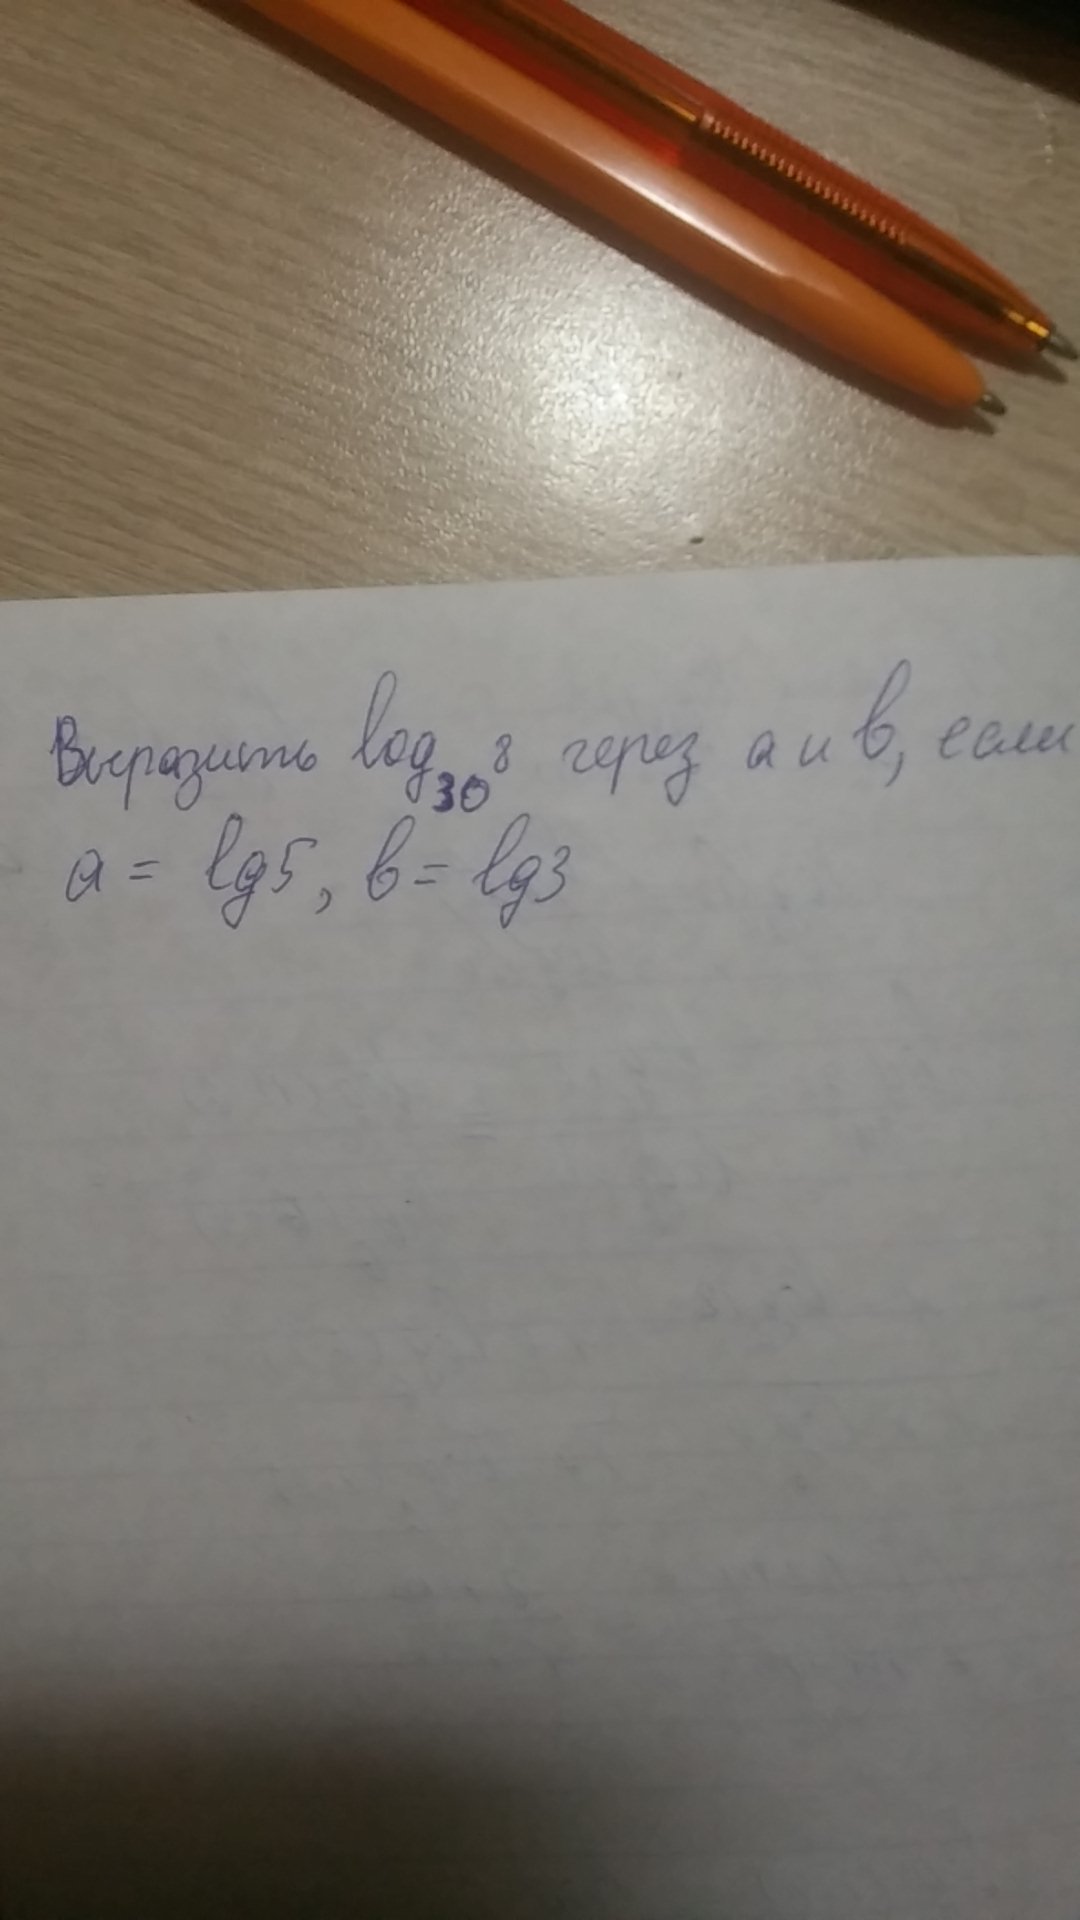 Выразить log₃₀8 через a и b, если
a = lg5, b = lg3